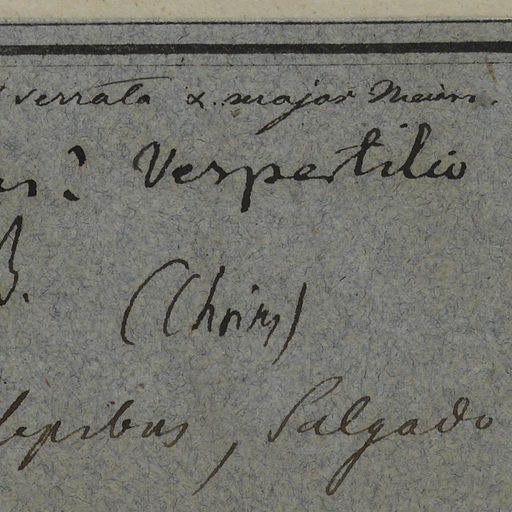 serrata α. major Meisn.
? Vespertilio
B.
(Choisy)
lepibus, Salgado